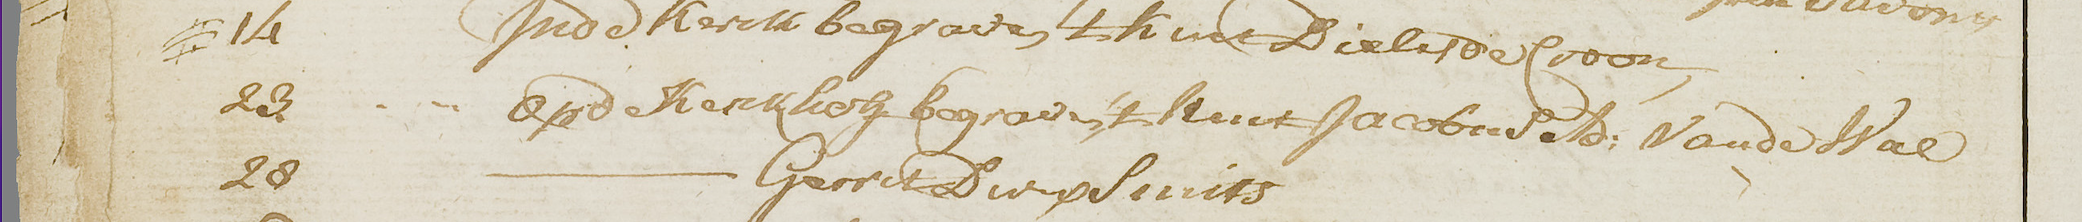 14 Inde Kerck begraven 't kint Dielis de Croon
23 - - Opde Kerckhof begraven 't kint Jacobus Ad: Vande Wal
28 —— Gerrit Dirx Smits